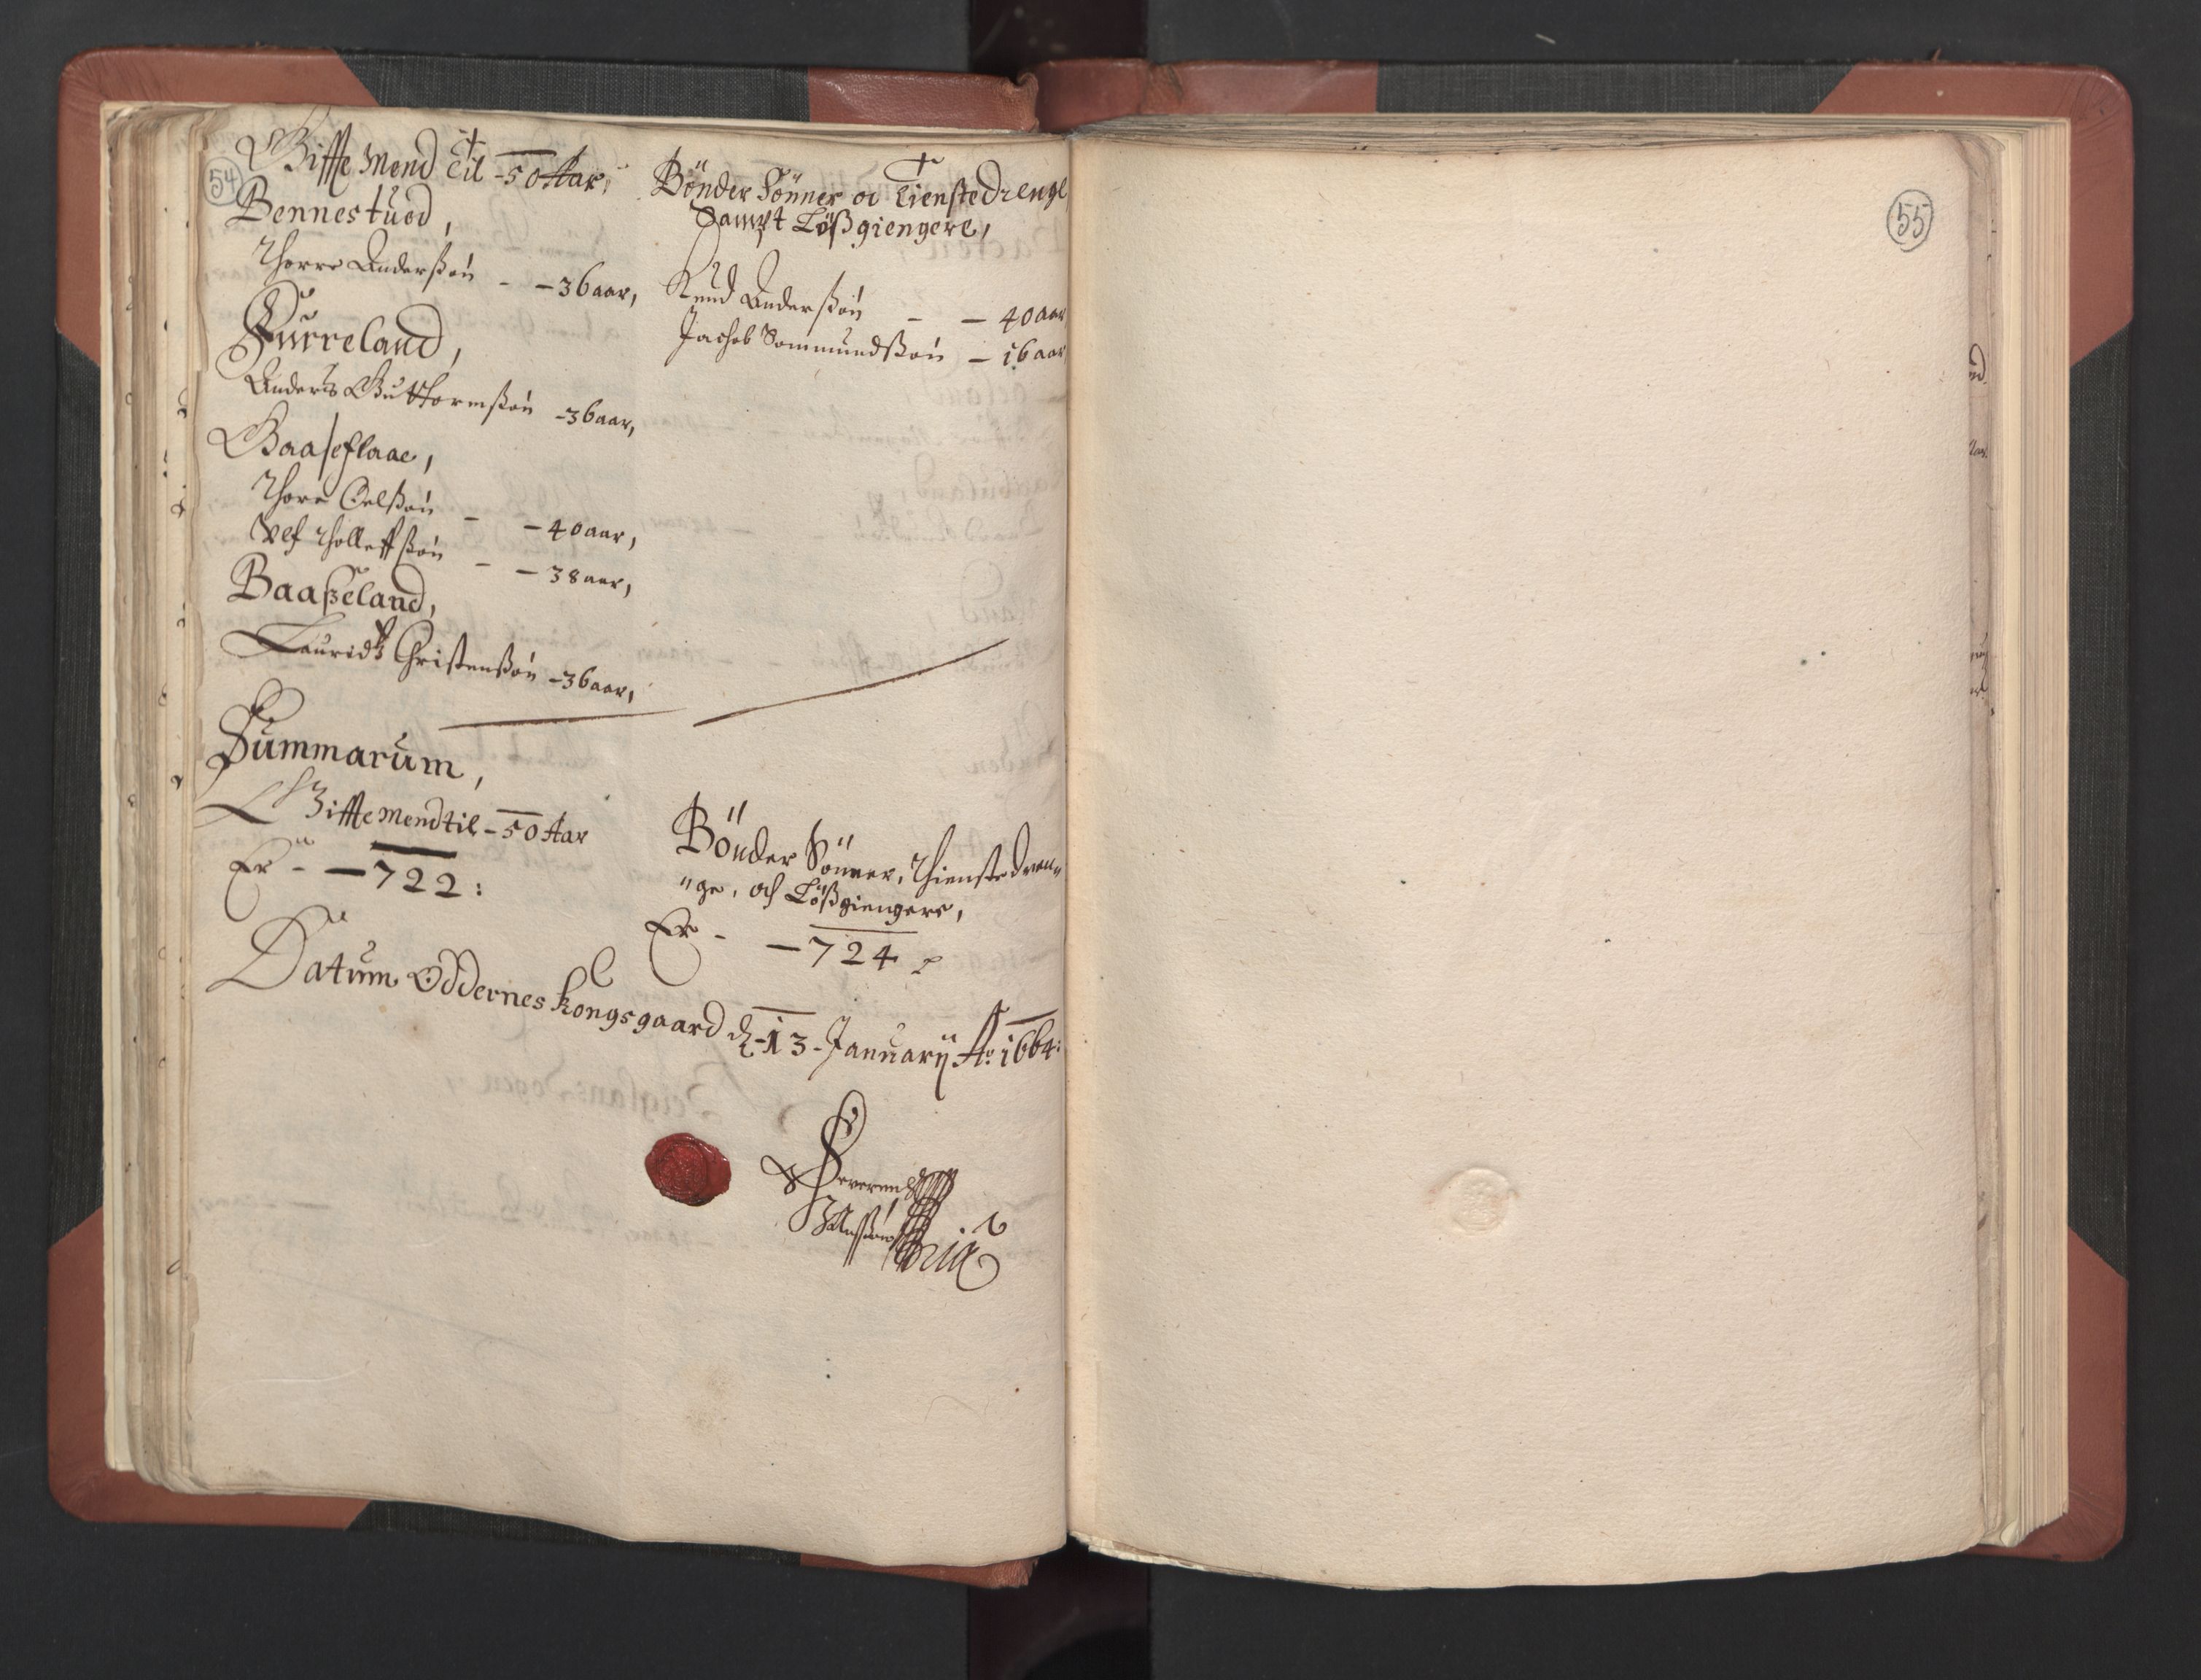 54
Giffte Mend til - 50 Aar,
Bennestued,
Thorre Anderßøn - - 36 aar,
Kurreland,
Anders Guttormßøn - 36 aar,
Gaaseflaae,
Thore Oelßøn - - 40 aar,
Ulf Tholleffßøn - - 38 aar,
Baaßeland,
Lauridtz Christenßøn - 36 aar,
Bönder Sönner oc Tienstedrenge
Sampt Lößgiengere,
Knud Anderßøn - - 40 aar
Jachob Sommundßøn - 16 aar
Summarum,
Giffte Mend til - 50 Aar
Er - - 722:
Bönder Sönner, Thienstedren„
„ge, och Lößgiengere,
Er - - 724
Datum Oddernes Kongsgaard d. 13 - Januarij Ao. 1664:
55